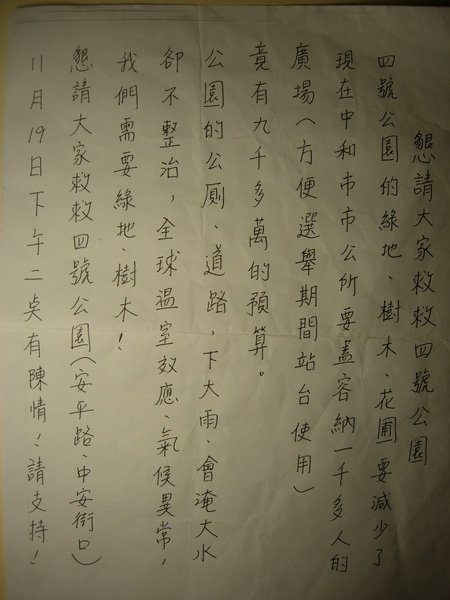 懇請大家救救四號公園
四號公園的綠地、樹木、花圃要減少了
現在中和市市公所要蓋容納一千多人的
廣場(方便選舉期間站台使用)
竟有九千多萬的預算。
公園的公厠、道路，下大雨.會淹大水
卻不整治，全球溫室效應 氣候異常，
我們需要綠地、樹木！
懇請大家救救四號公園(安平路、中安街口)
11月19日下午二点有陳情！請支持！